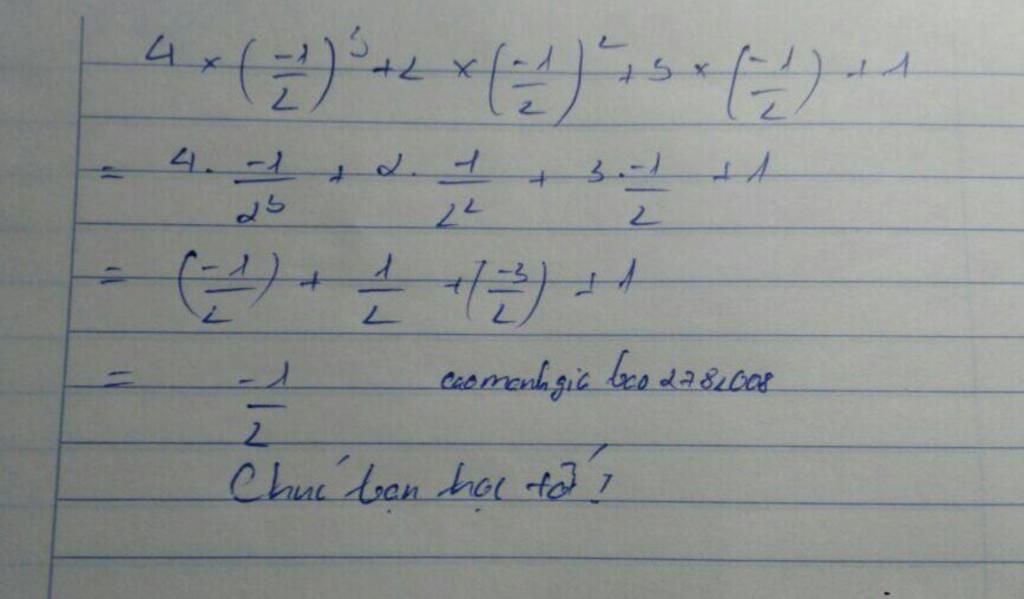 4 × (-1/2)^3 + 2 × (-1/2)^2 + 3 × (-1/2) + 1
= 4. -1/2^3 + 2. -1/2^2 + 3. -1/2 + 1
= (-1/2) + 1/2 + (-3/2) + 1
= -1/2 caomanhgia bao 2782008
Chúc bạn học tốt !